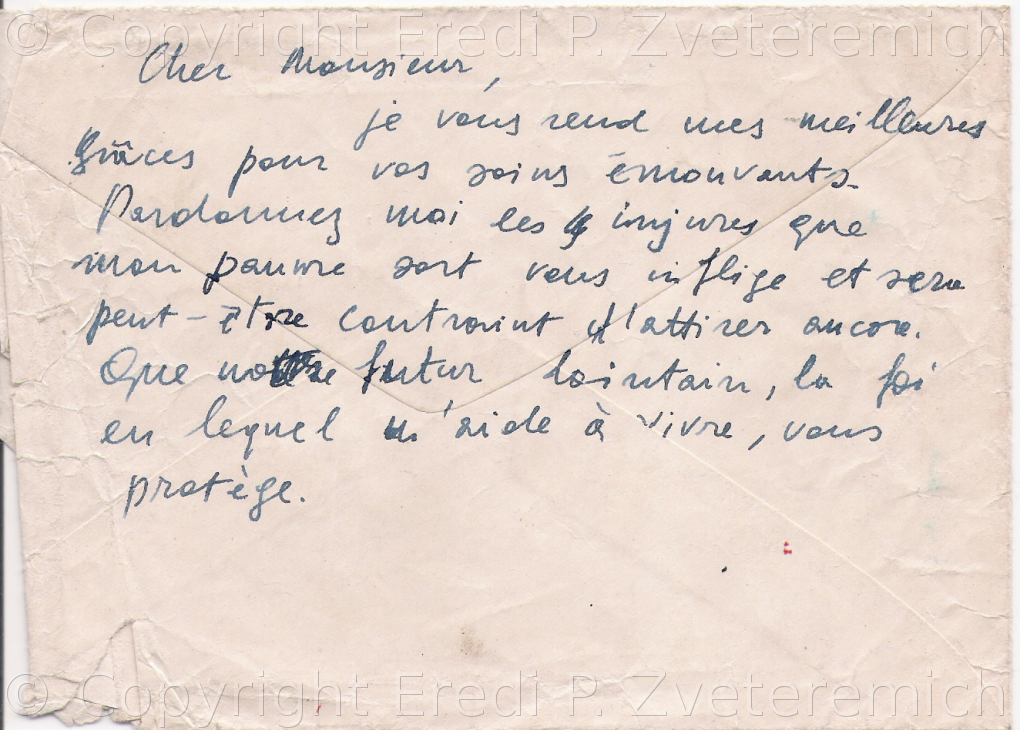 © Copyright Eredi P. Zveteremich
Cher Monsieur,
je vous rend mes meilleures
grâces pour vos soins émouvants.
Pardonnez moi les injures que
mon pauvre sort vous inflige et sera
peut-être contraint d'attirer ancore.
Que notre futur lointain, la foi
en lequel m'aide à vivre, vous
protège.
© Copyright Eredi P. Zveteremich